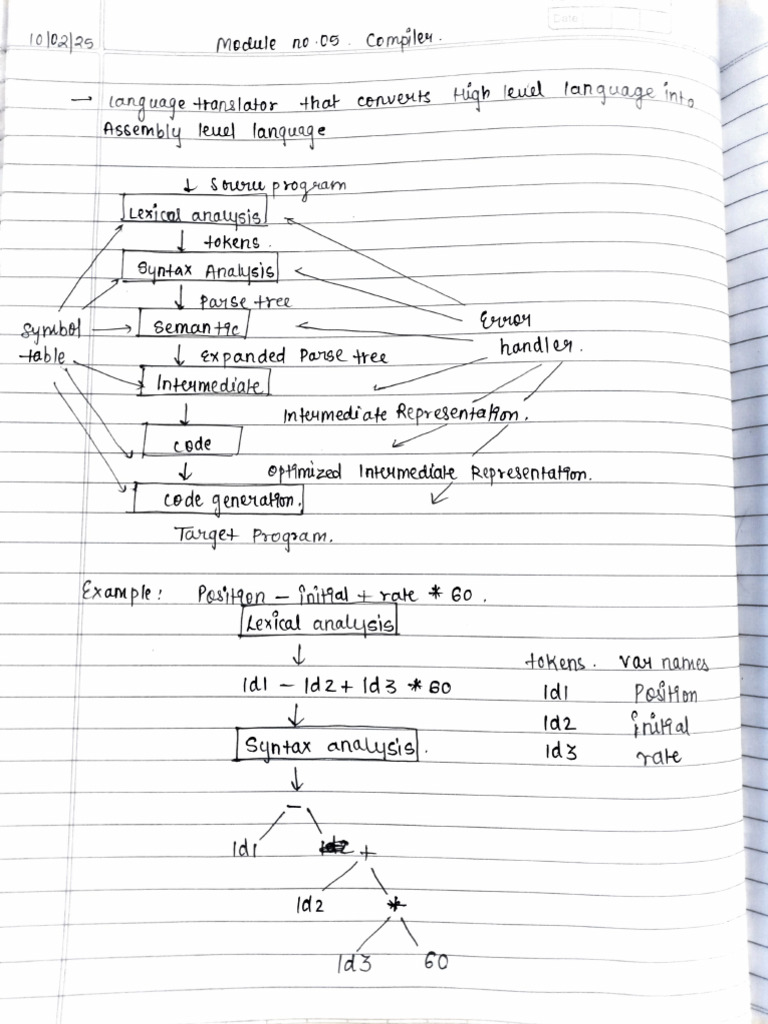 Date
10/02/25
Module no.05. Compiler.
→ Language translator that converts High level language into
Assembly level language
↓ Source program
Lexical analysis
↓ tokens.
Syntax Analysis
↓ Parse tree
Symbol table
Semantic
Error handler.
↓ Expanded Parse tree
Intermediate
↓ Intermediate Representation.
code
↓ Optimized Intermediate Representation.
code generation.
Target Program.
Example: Position - initial + rate * 60.
Lexical analysis
↓
Id1 - Id2 + Id3 * 60
↓
Syntax analysis.
↓
tokens. var names
Id1 Position
Id2 initial
Id3 rate
-
Id1 +
Id2 *
Id3 60